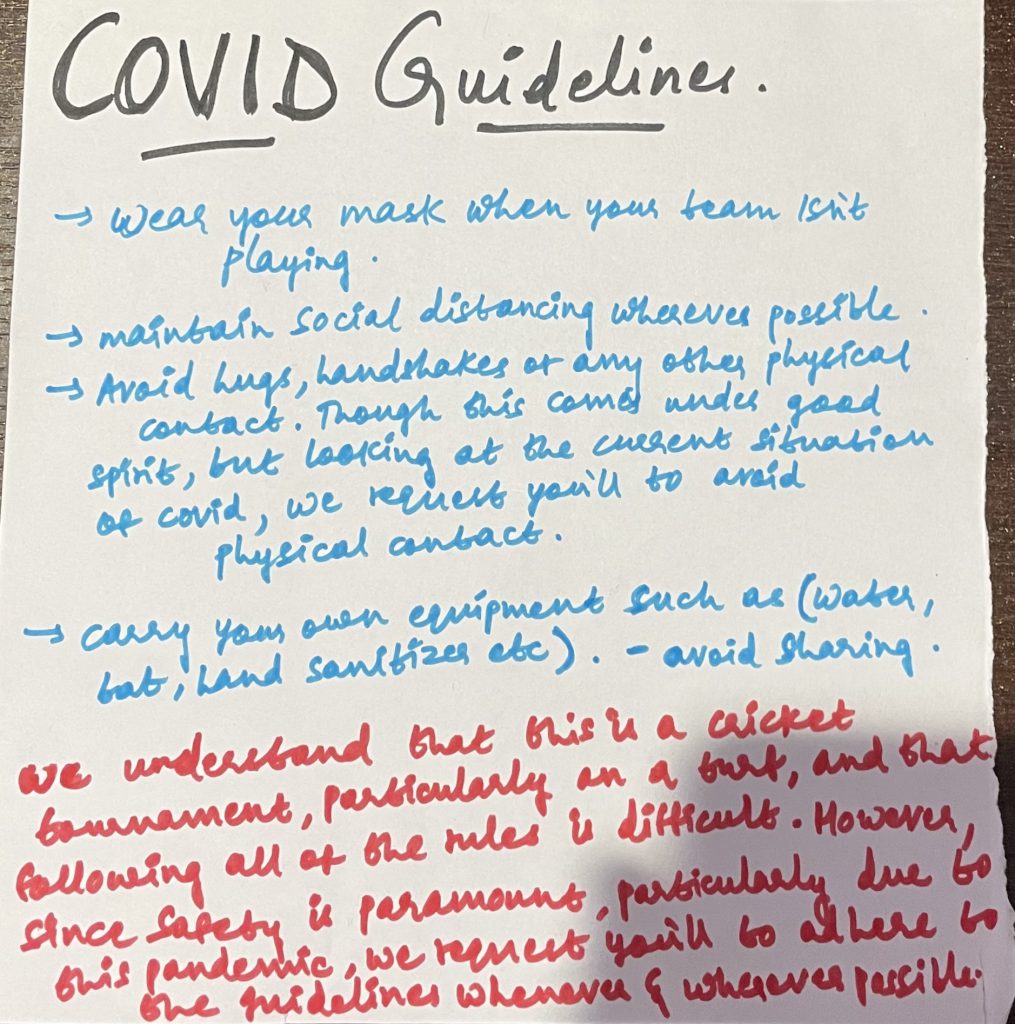 COVID Guidelines.
→ Wear your mask when your team isn't
playing.
→ maintain social distancing wherever possible.
→ Avoid hugs, handshakes or any other physical
contact. Though this comes under good
spirit, but looking at the current situation
of covid, we request you'll to avoid
physical contact.
→ carry your own equipment such as (water,
bat, hand sanitizer etc). - avoid sharing.
we understand that this is a cricket
tournament, particularly on a turf, and that
following all of the rules is difficult. However,
since safety is paramount, particularly due to
this pandemic, we request you'll to adhere to
the guidelines whenever & wherever possible.